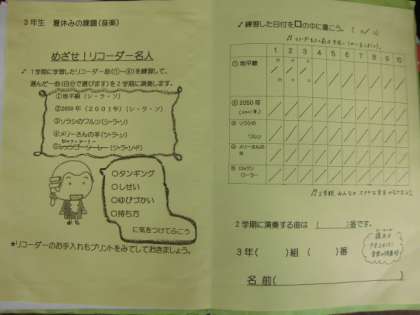 3年生 夏休みの課題(音楽)
めざせ!リコーダー名人
♪1学期に学習したリコーダー曲(①~⑤)を練習して、
選んだ一曲(自分で選びます)を2学期に演奏します。
①地平線(シ・ラ・ソ)
②2050年(2001年)(シ・ラ・ソ)
③ソラシのワルツ(シ・ラ・ソ)
④メリーさんの羊(シ・ラ・ソ)
○タンギング
○しせい
○ゆびづかい
○持ち方
に気をつけてふこう
*リコーダーのお手入れもプリントをみてしておきましょう。
♪練習した日付を□の中に書こう。
1 2 3 4 5 6 7 8 9 10
①地平線
②2050年
③ソラシの
ワルツ
④メリーさんの
羊
2学期に演奏する曲は( )番です。
3年( )組( )番
名前( )